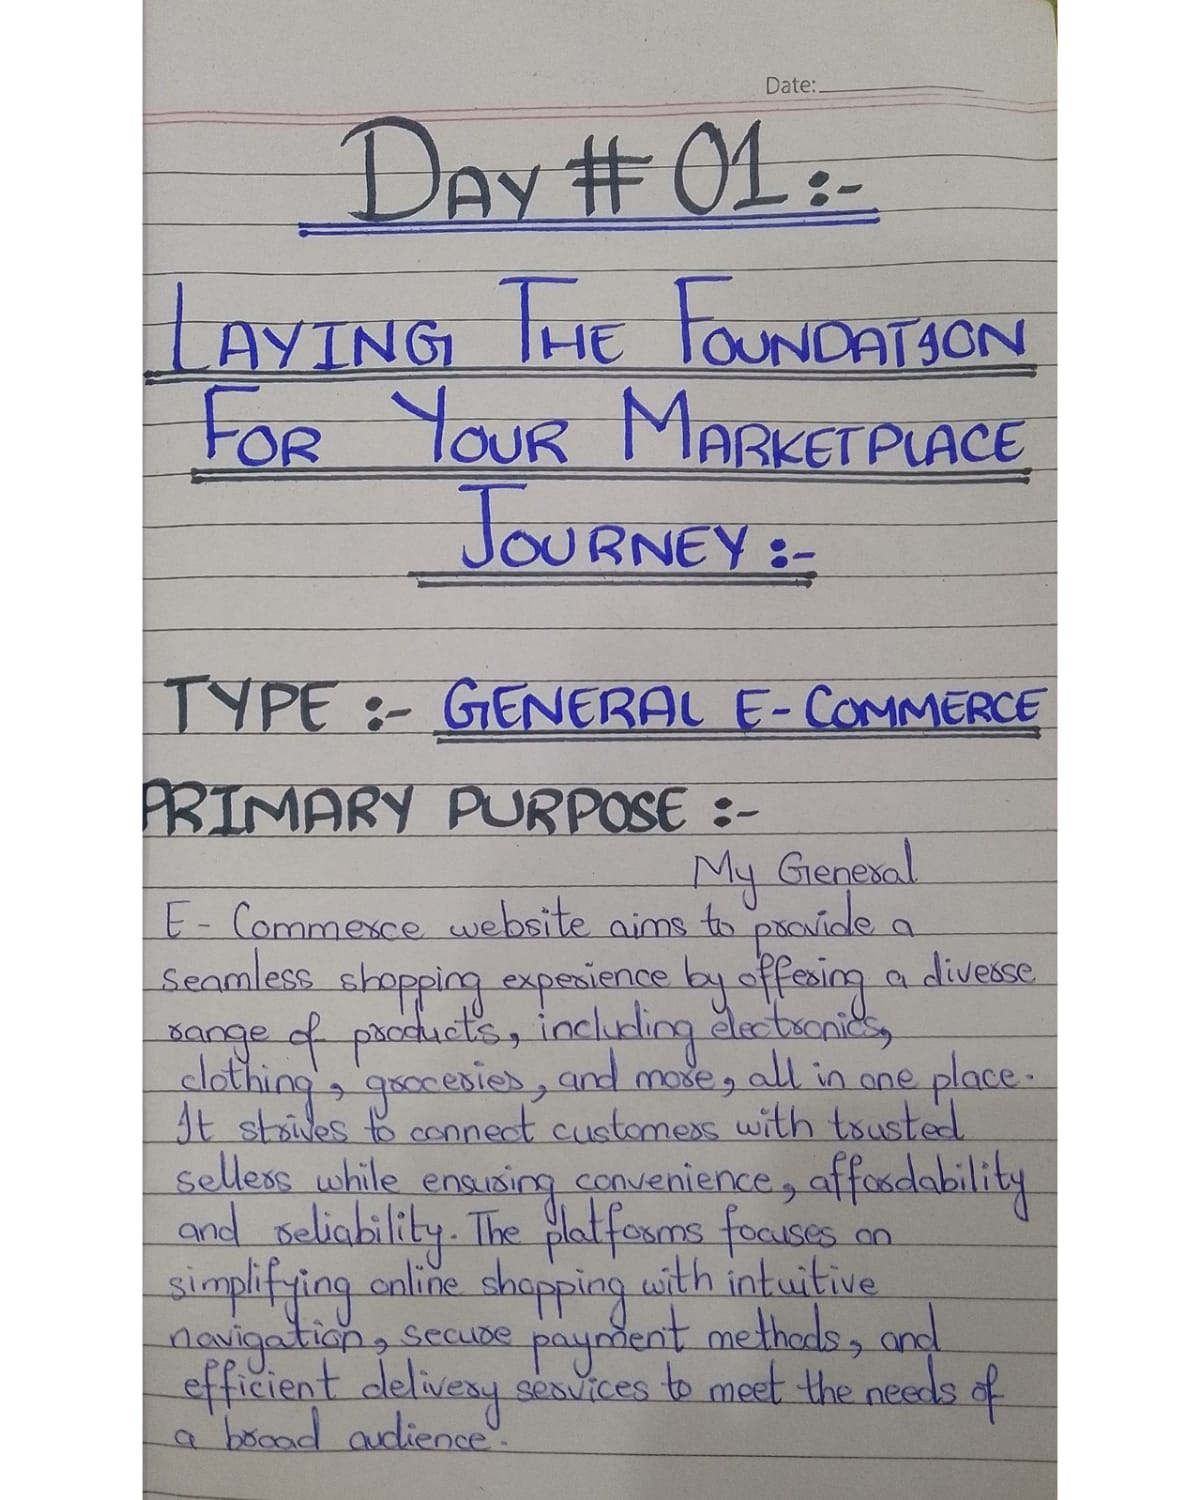 Date:
DAY # 01 :-
LAYING THE FOUNDATION
FOR YOUR MARKETPLACE
JOURNEY :-
TYPE :- GENERAL E-COMMERCE
PRIMARY PURPOSE :-
My General
E- Commerce website aims to provide a
seamless shopping experience by offering a diverse
range of products, including electronics,
clothing, groceries, and more, all in one place.
It strives to connect customers with trusted
sellers while ensuring convenience, affordability
and reliability. The platforms focuses on
simplifying online shopping with intuitive
navigation, secure payment methods, and
efficient delivery services to meet the needs of
a broad audience.